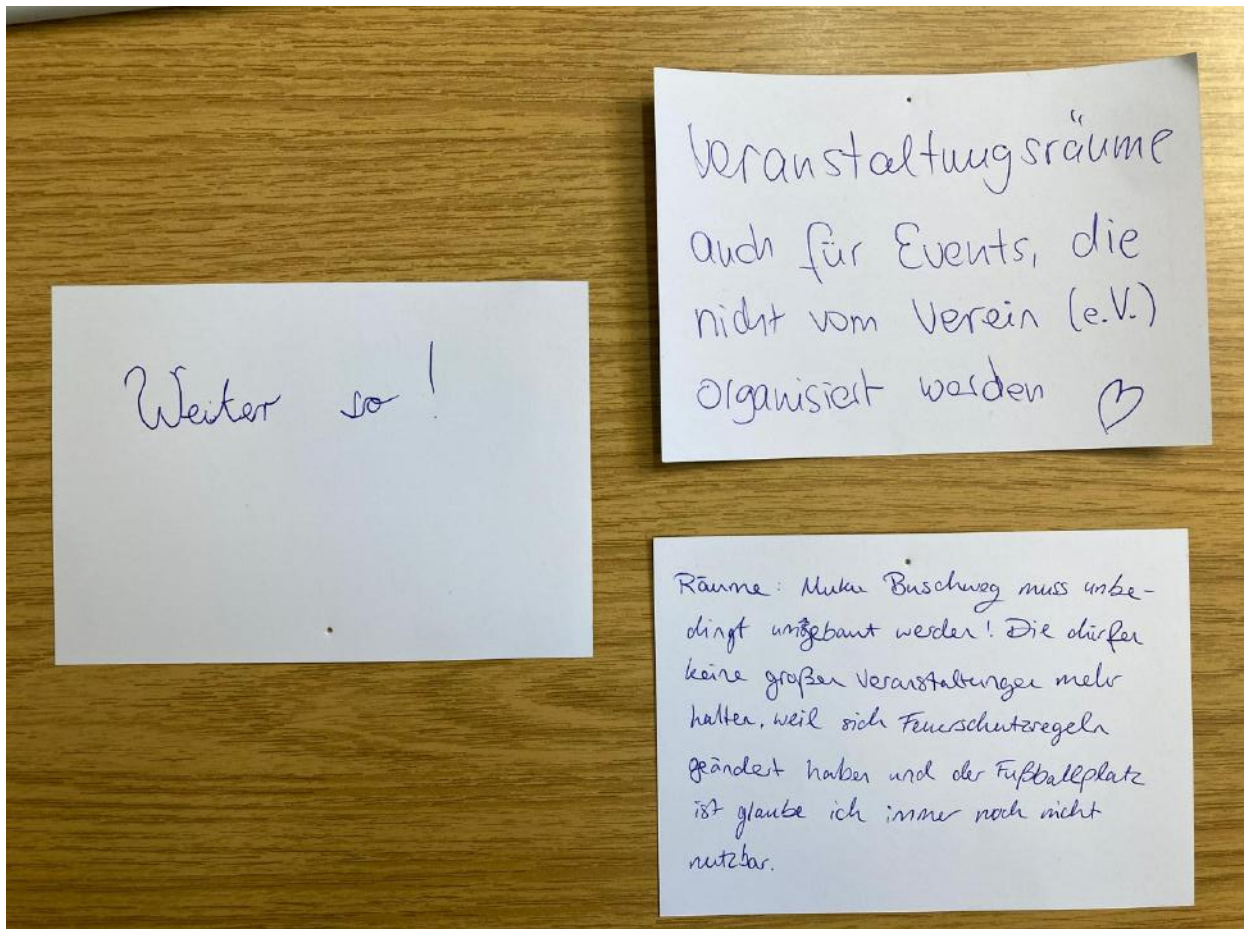 Weiter so!
Veranstaltungsräume
auch für Events, die
nicht vom Verein (e.V.)
organisiert werden
Räume: Muku Buschweg muss unbe-
dingt umgebaut werden! Die dürfen
keine großen Veranstaltungen mehr
halten, weil sich Feuerschutzregeln
geändert haben und der Fußballplatz
ist glaube ich immer noch nicht
nutzbar.